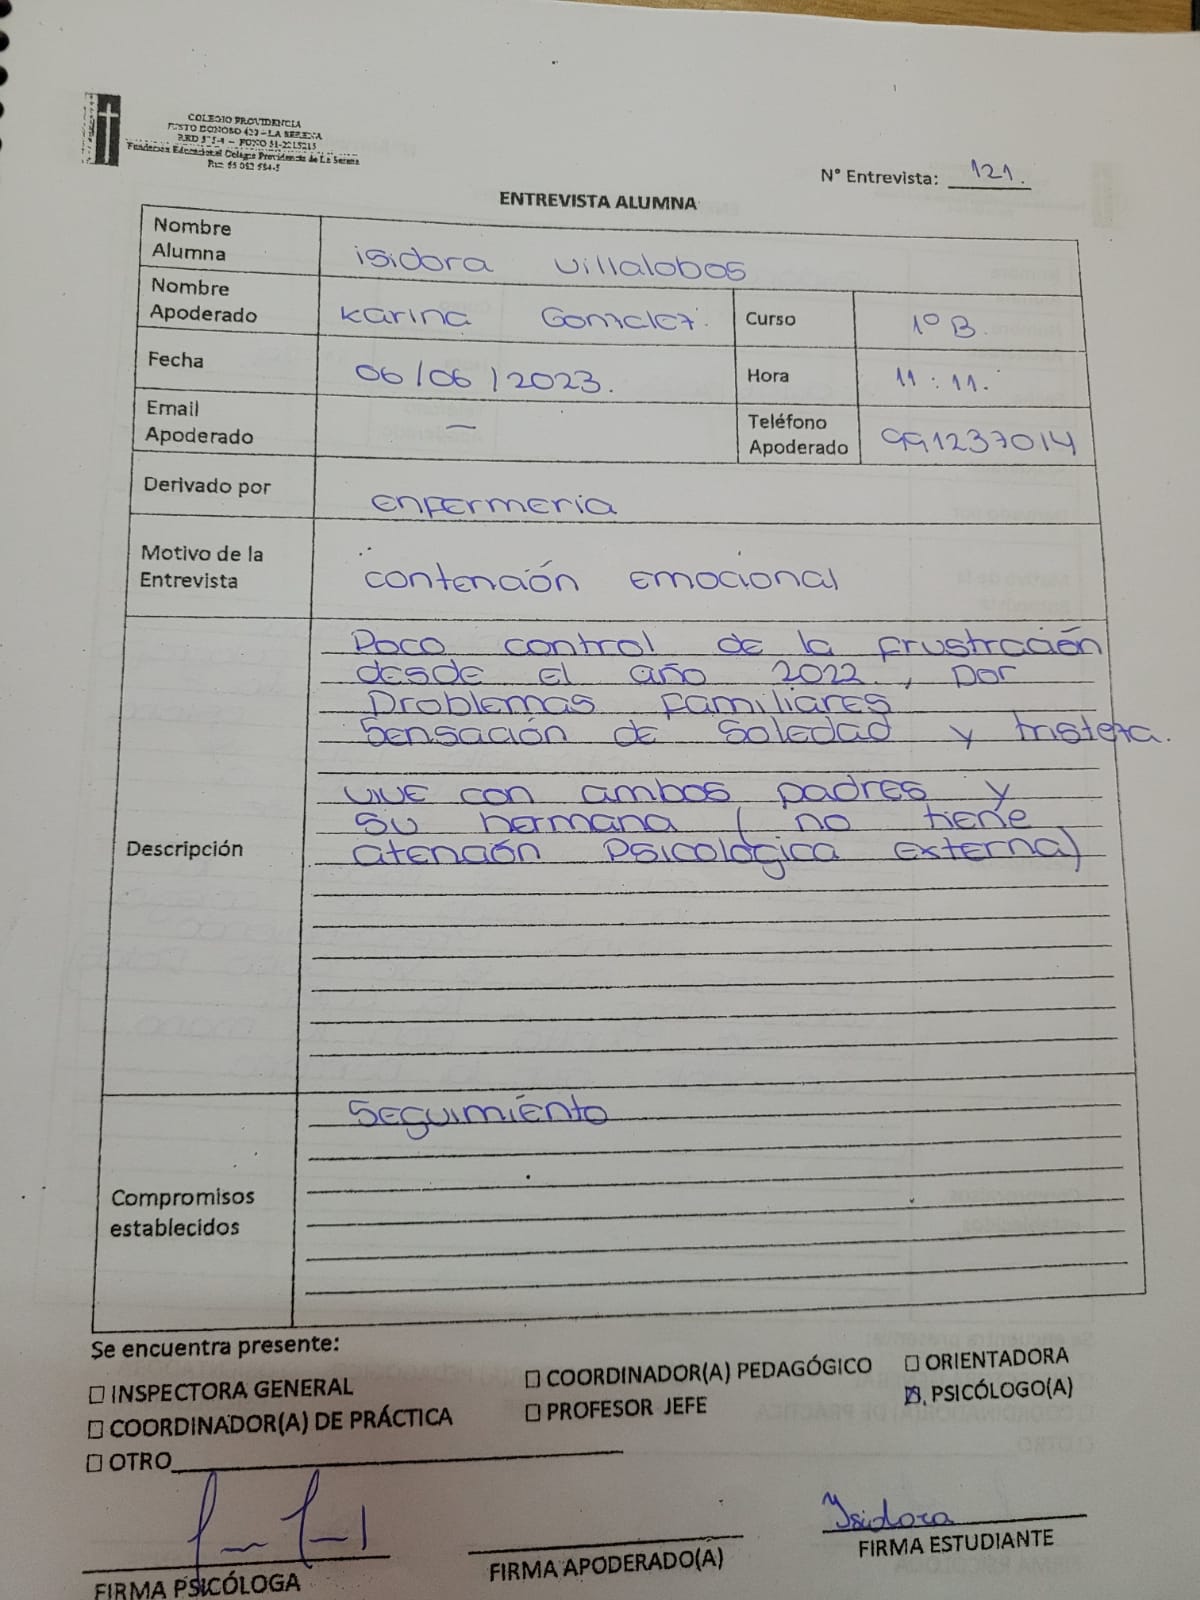 COLEGIO PROVIDENCIA
JUSTO DONOSO 420 - LA SERENA
Fundación Educacional Colegio Providencia de La Serena
N° Entrevista: 121.
ENTREVISTA ALUMNA
Nombre Alumna isidora Villalobos
Nombre Apoderado Karina Gonzalez. Curso 1º B.
Fecha 06/06/2023. Hora 11:11.
Email Apoderado — Teléfono Apoderado 991237014
Derivado por Enfermeria
Motivo de la Entrevista Contención Emocional
Descripción
Poco control de la frustración
desde el año 2022., por
Problemas Familiares
Sensación de Soledad y tristeza.
Vive con ambos padres y
su hermana ( no tiene
atención Psicológica externa)
Compromisos establecidos
Seguimiento
Se encuentra presente:
☐ INSPECTORA GENERAL ☐ COORDINADOR(A) PEDAGÓGICO ☐ ORIENTADORA
☐ COORDINADOR(A) DE PRÁCTICA ☐ PROFESOR JEFE ☒ PSICÓLOGO(A)
☐ OTRO
Isidora
FIRMA PSICÓLOGA FIRMA APODERADO(A) FIRMA ESTUDIANTE